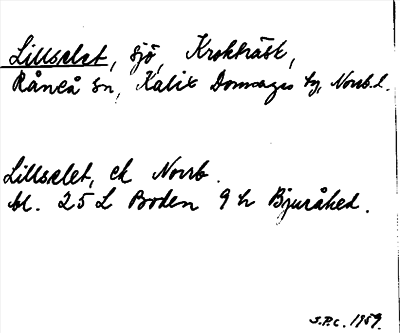 Lillselet, sjö, Krokträsk,
Råneå sn, Kalix Domsagas by, Norrb. l.
Lillselet, ek Norrb.
bl. 25 L Boden 9 h Bjuråhed.
S.P.C. 1959.